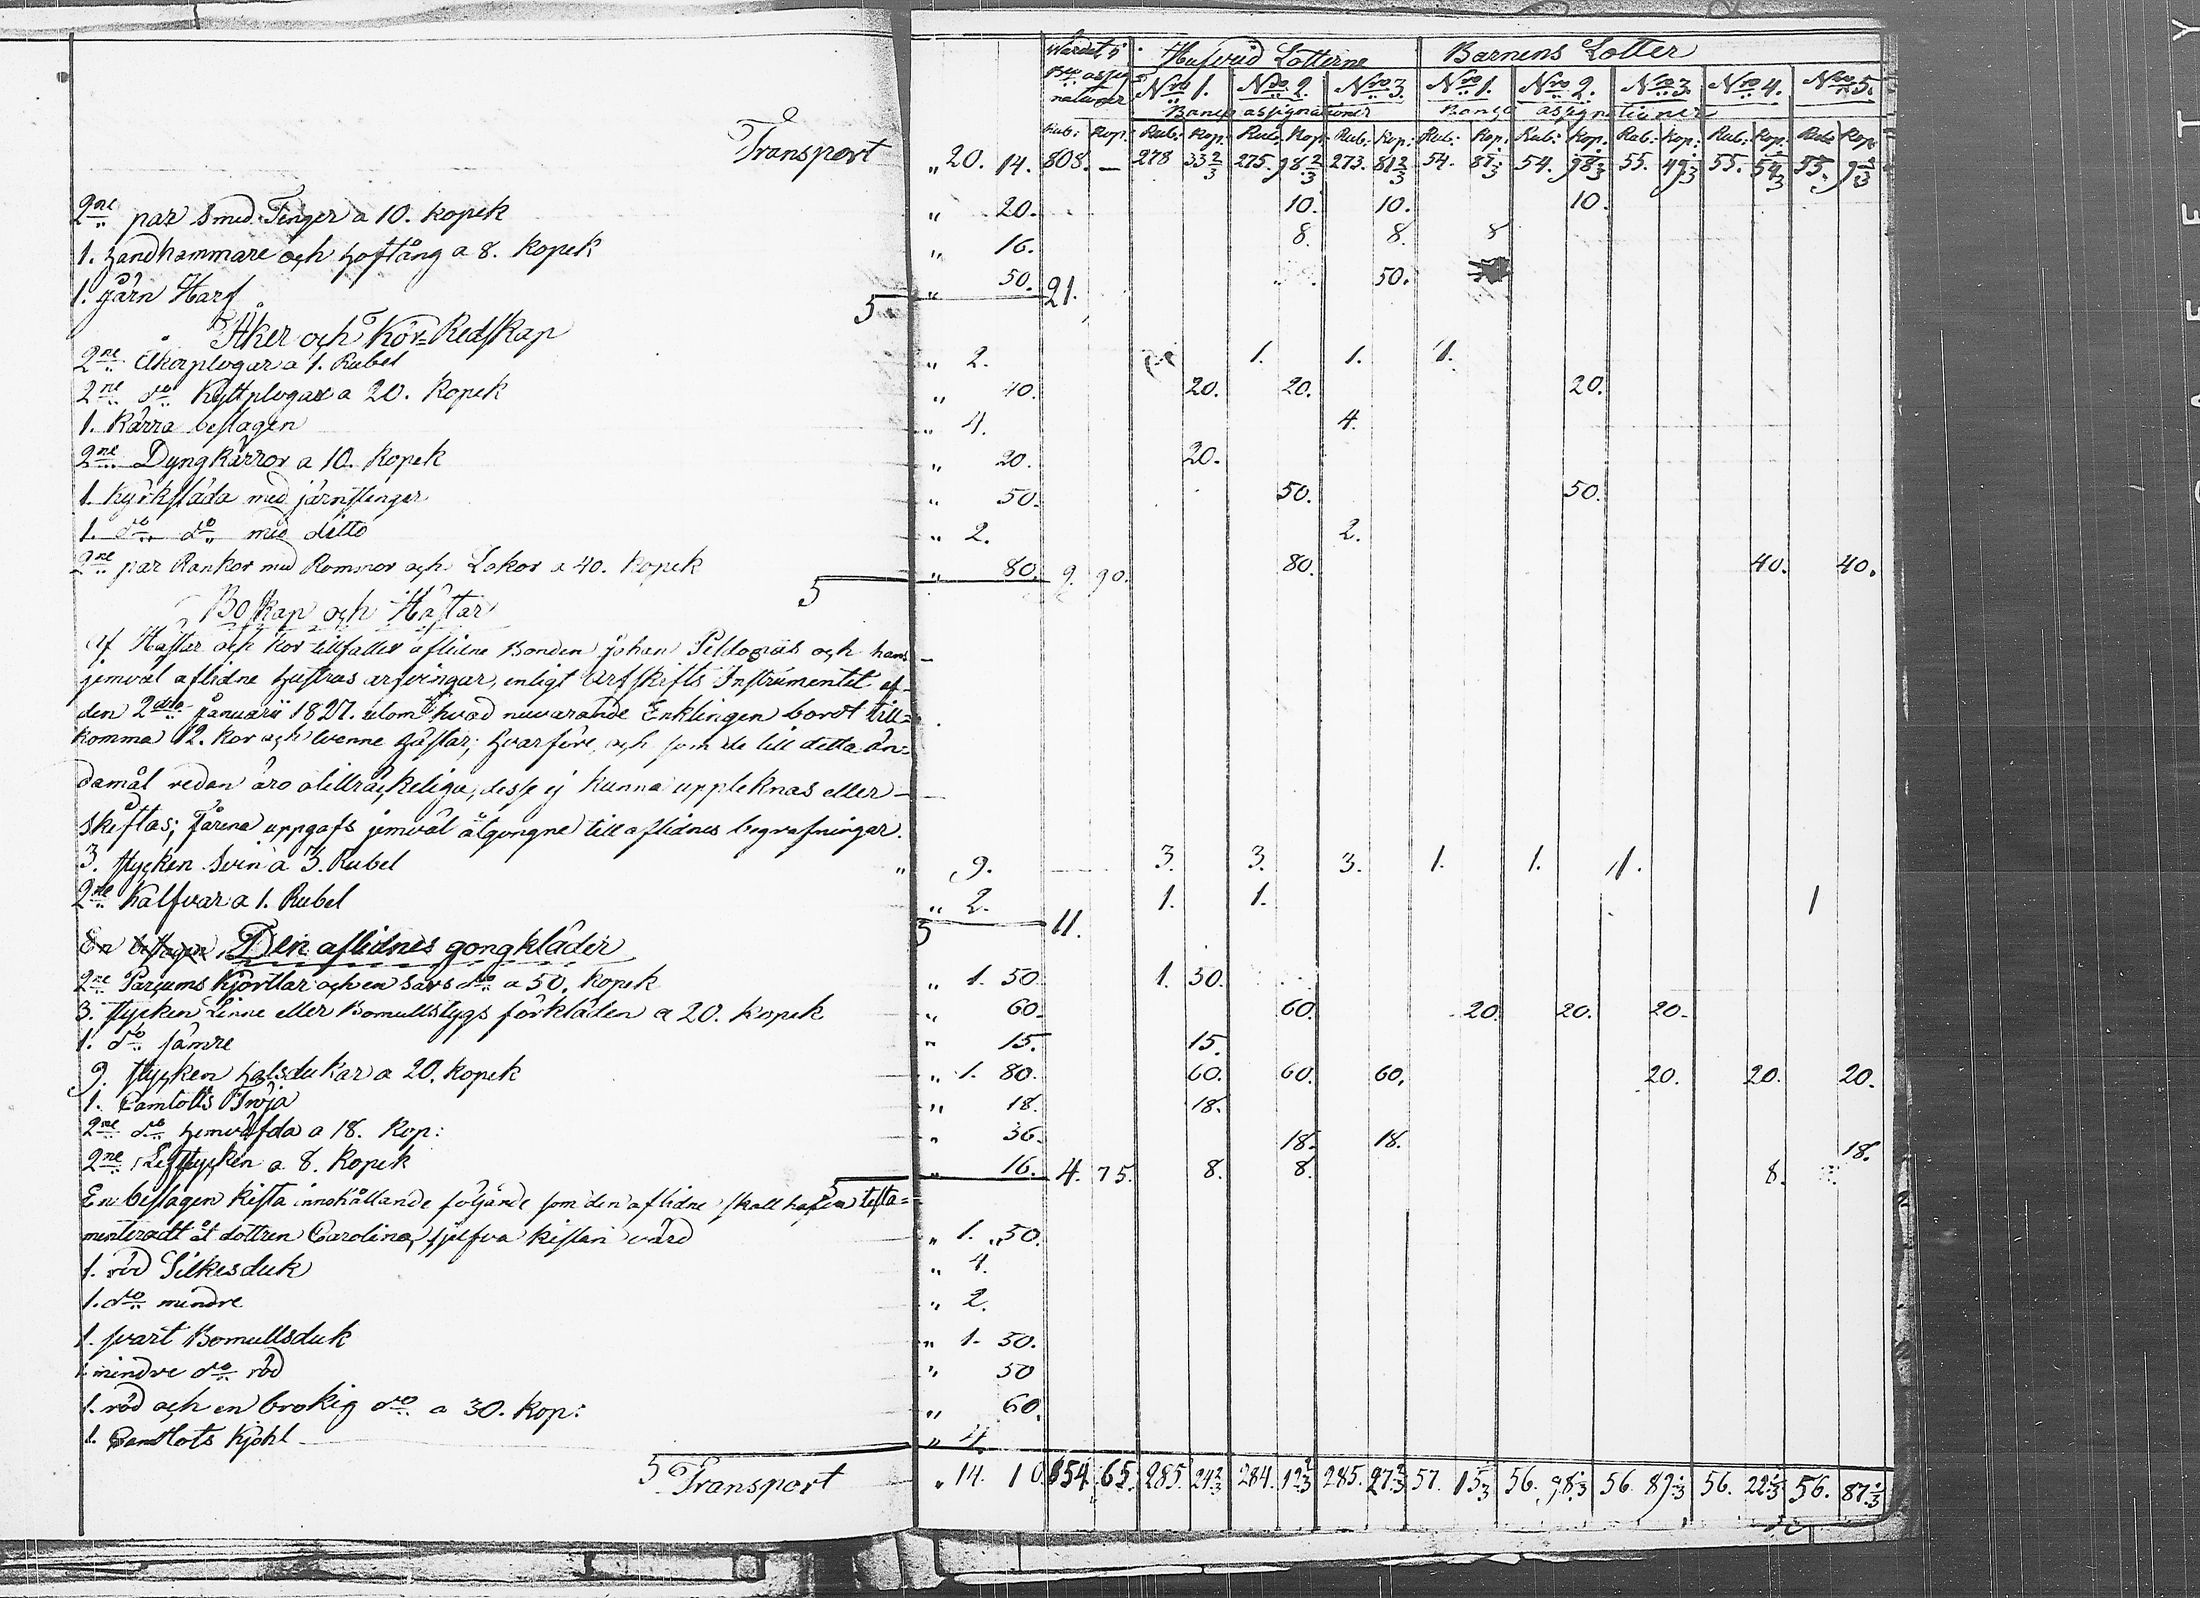 Wärdet i Hufvud Lotterne Barnens Lotter
Bco assig
nationer Nro 1. Nro 2. Nro 3. Nro 1. Nro 2. Nro 3. Nro 4. Nro 5.
Banco assignationer Banco assignationer
Rub: Kop: Rub: Kop: Rub: Kop: Rub: Kop: Rub: Kop: Rub: Kop: Rub: Kop: Rub: Kop: Rub: Kop:
Transport „ 20. 14. 808. — 278 33 2/3 275. 98 2/3 273. 81 2/3 54. 54. 98 1/3 55. 49 1/3 55. 55.
2ne par Smed Tenger a 10. Kopek „ 20. 10. 10. 10.
1. Handhammare och Hoftång a 8. Kopek „ 16. 8. 8. 8
1. järn Harf „ 50. 21. 50.
Åker och Kör=Redskap
2ne Åkerplogar a 1. Rubel „ 2. 1. 1. 1.
2ne do Kyttplogar a 20. Kopek „ 40. 20. 20. 20.
1. Kärra beslagen „ 4. 4.
2ne Dyngkärror a 10. Kopek „ 20. 20.
1. Kyrksläda med järnstenger „ 50. 50. 50.
1. do do med ditto „ 2. 2.
2ne par Rankor med Rommor och Lokor a 40. Kopek „ 80. 9. 90. 80. 40. 40.
Boskap och Hästar
Af Hästar och Kor tillfaller aflidne Bonden Johan och hans
jemväl aflidne Hustrus arfvingar, enligt Arfskifts Instrumentet af
den 2dra Januarii 1827. utom hvad nuvarande Enklingen bordt till=
komma 12. Kor och tvenne Hästar; Hvarföre, och som de till detta än=
damål redan äro otillräckeliga, desse ej kunna uppteknas eller
skiftas; Fårena uppgafs jemväl åtgongne till aflidnes begrafningar.
3. stycken Svin a 3. Rubel „ 9. 3. 3. 3. 1. 1. 1.
2ne Kalfvar a 1. Rubel „ 2. 11. 1. 1. 1
En beslagen Den aflidnes gongkläder
2ne Parcums Kjortlar och en Sars do a 50. Kopek „ 1. 50. 1. 50.
3. stycken Linne eller Bomullstygs förkläden a 20. Kopek „ 60. 60. 20. 20. 20.
1. do sämre „ 15. 15.
9. stycken Halsdukar a 20. Kopek „ 1. 80. 60. 60. 60. 20. 20. 20.
1. Camlotts Tröja „ 18. 18.
2ne do Hemväfda a 18. Kop: „ 36. 18. 18. 18.
2ne Lifstycken a 8. Kopek „ 16. 4. 75. 8. 8. 8.
En beslagen Kista innehållande följande som den aflidne skall hafva testa=
menteradt åt dottren Carolina, sjelfva Kistan värd „ 1. 50.
1. röd Silkesduk „ 4.
1. do mindre „ 2.
1. svart Bomullsduk „ 1. 50.
1. mindre do röd „ 50
1. röd och en brokig do a 30. Kop: „ 60.
1. Camlots Kjohl „ 4.
Transport „ 14. 10. 854. 65. 285. 24 2/3 284. 12 2/3 285. 27 2/3 57. 15 1/3 56. 98 1/3 56. 89 1/3 56. 22 1/3 56. 87 1/3